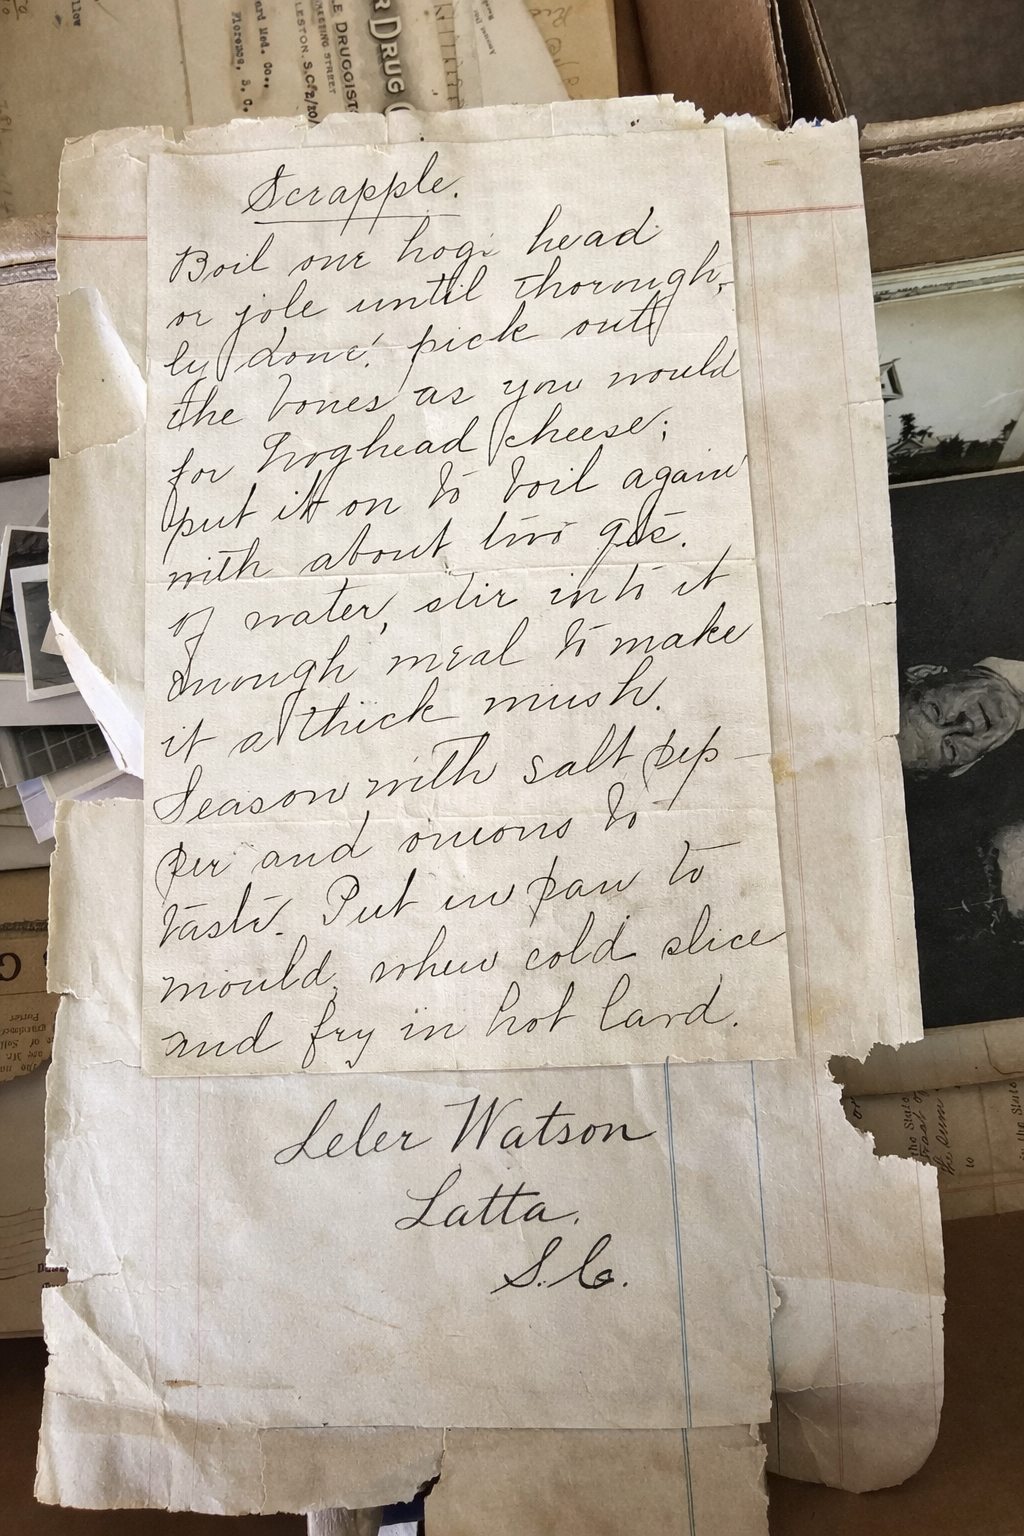 R DRUG
E DRUGGIST
MEETING STREET
LESTON, S.C.
2/20/
ard Med. Co.,
Florence, S. C.
Scrapple.
Boil one hogs head
or jole until thorough,
ly done, pick out
the bones as you would
for hoghead cheese;
put it on to boil again
with about two qts.
of water, stir into it
enough meal to make
it a thick mush.
Season with salt pep-
per and onions to
taste. Put in pan to
mould, when cold slice
and fry in hot lard.
Leler Watson
Latta,
S.C.
the State
in the State